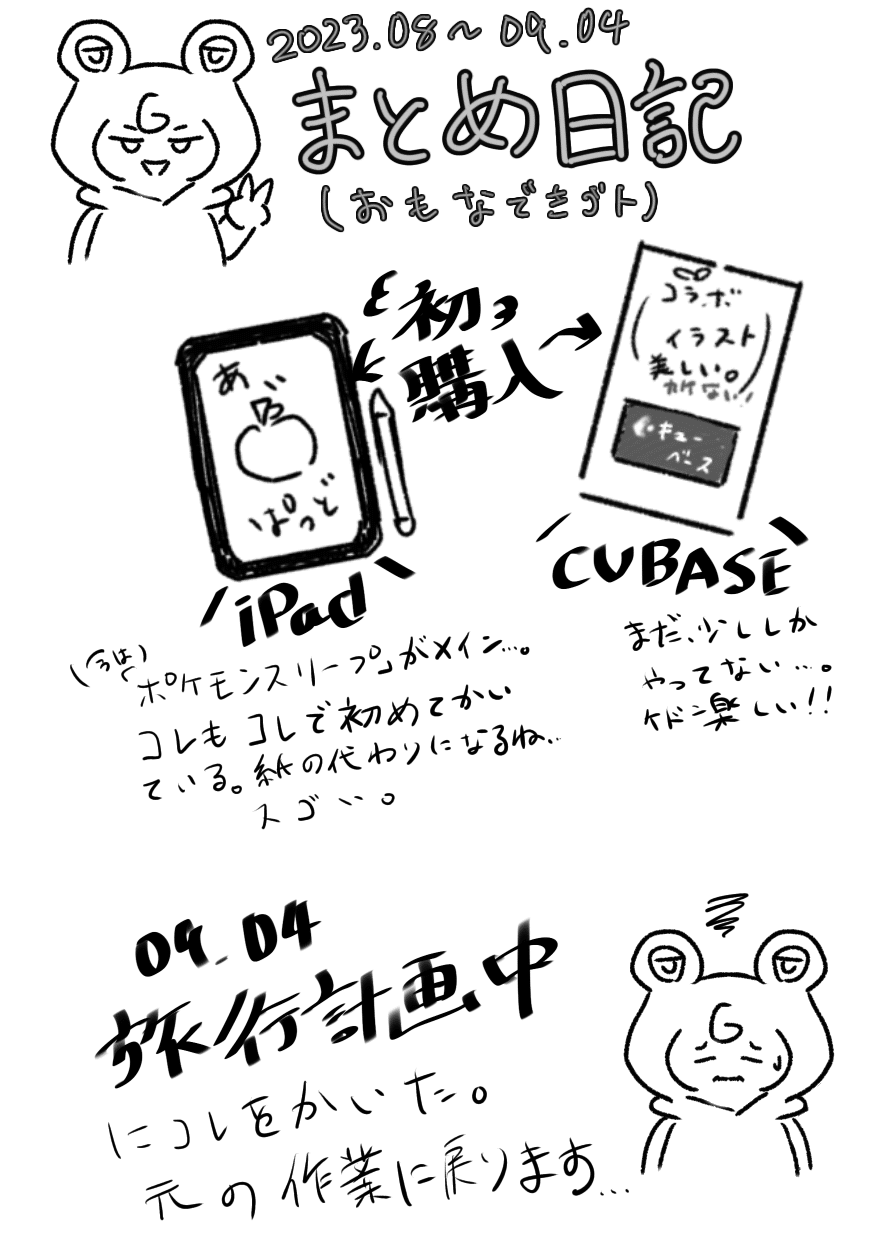 2023.08~09.04
まとめ日記
(おもなできゴト)
初
購入
あい
ぱっど
コラボ
イラスト
美しい。
カケない!
キュー
ベース
iPad
CUBASE
(今は)
ポケモンスリープ」がメイン…。
コレもコレで初めてかい
ている。紙の代わりになるね…
スゴい。
まだ、少ししか
やってない…。
ケドン楽しい!!
09.04
旅行計画中
にコレをかいた。
元の作業に戻ります…